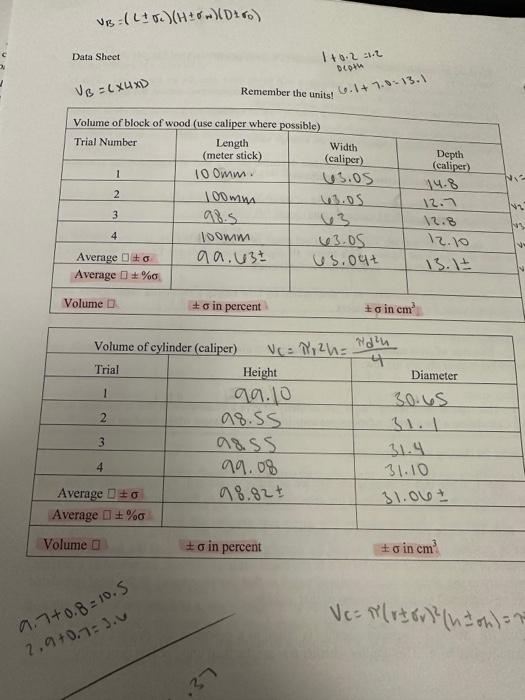 VB = (L ± σL)(H ± σH)(D ± σD)
Data Sheet
1 + 0.2 = 1.2
Depth
VB = LXHXD
Remember the units!
6.1 + 7.0 = 13.1
Volume of block of wood (use caliper where possible)
Trial Number Length (meter stick) Width (caliper) Depth (caliper)
1 100mm. 63.05 14.8
2 100mm 63.05 12.7
3 98.5 63 12.8
4 100mm 63.05 12.10
Average □ ± σ 99.63± 63.04± 13.1±
Average □ ± %σ
Volume □ ± σ in percent ± σ in cm³
Volume of cylinder (caliper) Vc = πr²h = πd²h/4
Trial Height Diameter
1 99.10 30.65
2 98.55 31.1
3 98.55 31.4
4 99.08 31.10
Average □ ± σ 98.82± 31.06±
Average □ ± %σ
Volume □ ± σ in percent ± σ in cm³
9.7 + 0.8 = 10.5
2.9 + 0.7 = 3.6
Vc = π(r ± σr)²(h ± σh) =
.37